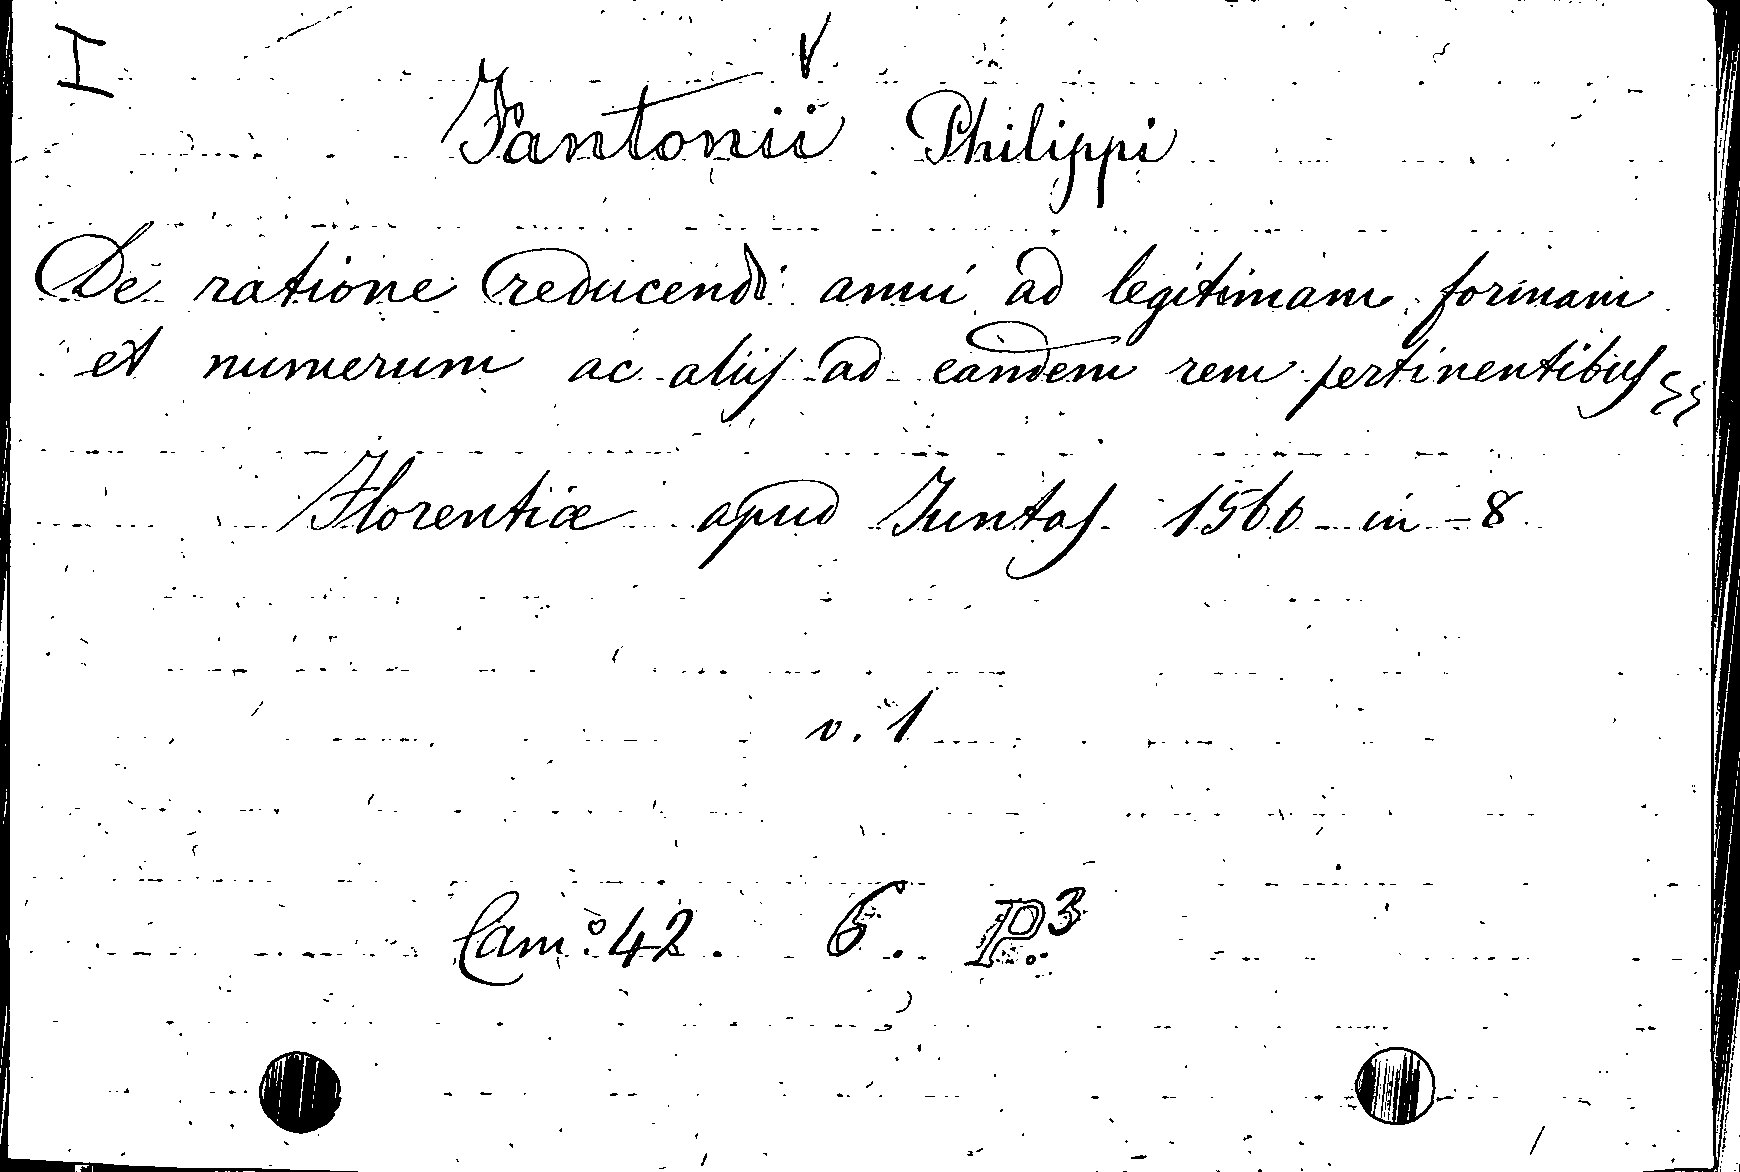 I
V
Fantonii Philippi
De ratione reducendi anni ad legitimam formam
et numerum ac aliis ad eandem rem pertinentibus
Florentiæ apud Juntas 1560 in-8
v. 1
Cam.º 42. 6. P.3